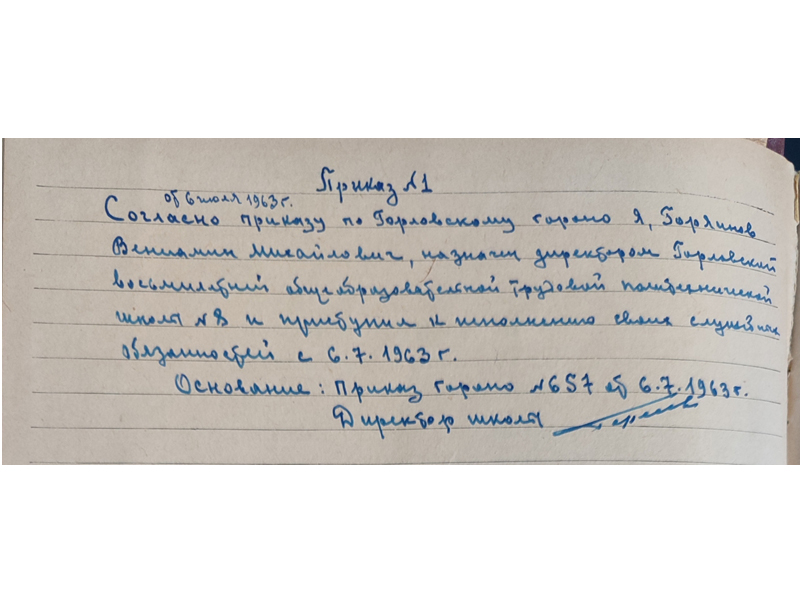 Приказ №1
от 6 июля 1963 г.
Согласно приказу по Горловскому гороно я, Горяинов
Вениамин Михайлович, назначен директором Горловской
восьмилетней общеобразовательной трудовой политехнической
школы №8 и приступил к исполнению своих служебных
обязанностей с 6.7.1963 г.
Основание: приказ гороно №657 от 6.7.1963 г.
Директор школы